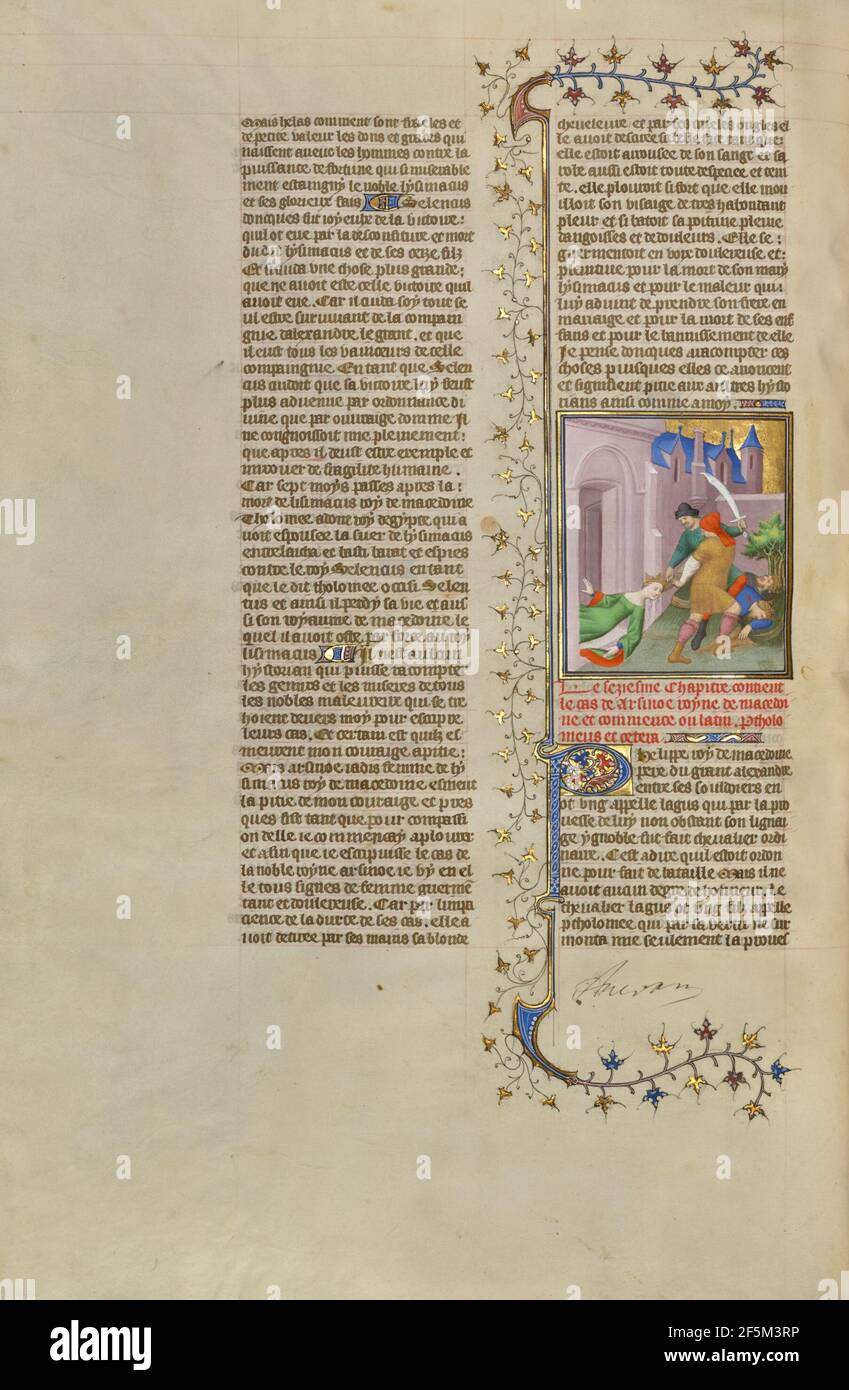 Mais helas comment sont fraeles et
de petite valeur les dons et graces qui
naissent avenc les hommes contre la
puissance de fortune qui si miserable
ment estaigny le noble lysimacus
et ses glorieux fais Selencus
doncques fut ioyeux de la victoire
quil ot eue par la desconfiture et mort
dudit lysimacus et de ses filz
Et cuida une chose plus grande
que ne avoit este celle victoire quil
avoit eue. Car il cuida soy tout se
ul estre survivant de la compai
gnie dalexandre le grant, et que
il eust tous les vainceurs de celle
compaignie. En tant que Selen
cus cuidoit que sa victoire luy feust
plus advenue par ordonnance di
uine que par ouuraige domme Il
ne congnoissoit mie plainement
que apres il deust estre exemple et
mirouer de fragilite humaine.
Car sept moys passes apres la
mort de lisimacus roy de macedoine
Tholomee adont roy degypte qui a
voit espousee la suer de lysimacus
et basti barat et espies
contre le roy Selencus en tant
que le dit tholomee occist Selen
cus et ainsi il perdy sa vie et aus
si son royaume de macedoine le
quel il avoit oste par force au roy
lisimacus Il nest aucun
hystorian qui puisse racompter
les gemirs et les miseres de tous
les nobles maleureux qui se tre
hoient devers moy pour escripre
leurs cas. Et certain est quilz es
meuvent mon couraige a pitie
Mais arsinoe iadis femme de ly
simacus roy de macedoine esmeut
la pitie de mon couraige et pres
ques fist tant que pour compassi
on delle ie commencay a plourer
et afin que ie escripuisse le cas de
la noble royne arsinoe ie vy en el
le tous signes de femme guermen
tant et doulereuse. Car par impa
cience de la durte de ses cas, elle a
voit detiree par ses mains sa blonde
cheveleure et par ses crueles ongles el
le avoit desciree sa face tant que
elle estoit arrousee de son sang et sa
robe aussi estoit toute despecee et
elle plouroit si fort que elle mou
illoit son visaige de tres habondant
pleur et si batoit sa poitrine pleine
dangoisses et de douleurs. Elle se
guermentoit en voix doulereuse et
plaintive pour la mort de son mary
lysimacus et pour le maleur qui
luy advint de prendre son frere en
mariaige et pour la mort de ses enf
fans et pour le bannissement de elle
Je pense doncques a racompter ces
choses puisques elles anoncent
et signifient pitie aux autres hysto
rians ainsi comme a moy.
Le seziesme Chapitre contient
le cas de Arsinoe royne de macedoi
ne et commence ou latin. Ptholo
meus et cetera.
Phelippe roy de macedoine
pere du grant alexandre
entre ses souldiers en
ot ung appelle lagus qui par la pro
uesse de luy non obstant son lignai
ge ygnoble fut fait chevalier ordi
naire. Cest a dire quil estoit ordon
ne pour fait de bataille Mais il ne
avoit aucun degre de honneur. Le
chevalier lagus ot ung filz appelle
ptholomee qui par sa vertu ne sur
monta mie seulement la proues
a
alamy
Image ID: 2F5M3RP
www.alamy.com